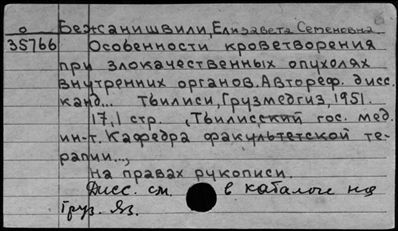 о Бежанишвили, Елизавета Семеновна
35766 Особенности кроветворения
при злокачественных опухолях
внутренних органов. Автореф. дисс.
канд... Тбилиси, Грузмедгиз, 1951.
17,1 стр. , Тбилисский гос. мед.
ин-т. Кафедра факультетской те-
рапии...,
на правах рукописи.
Дисс. см. в каталоге на
Груз. Яз.